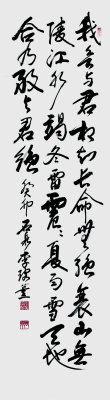 我欲与君相知长命無绝衰山無
陵江水为竭冬雷震震夏雨雪天地
合乃敢与君绝 癸卯